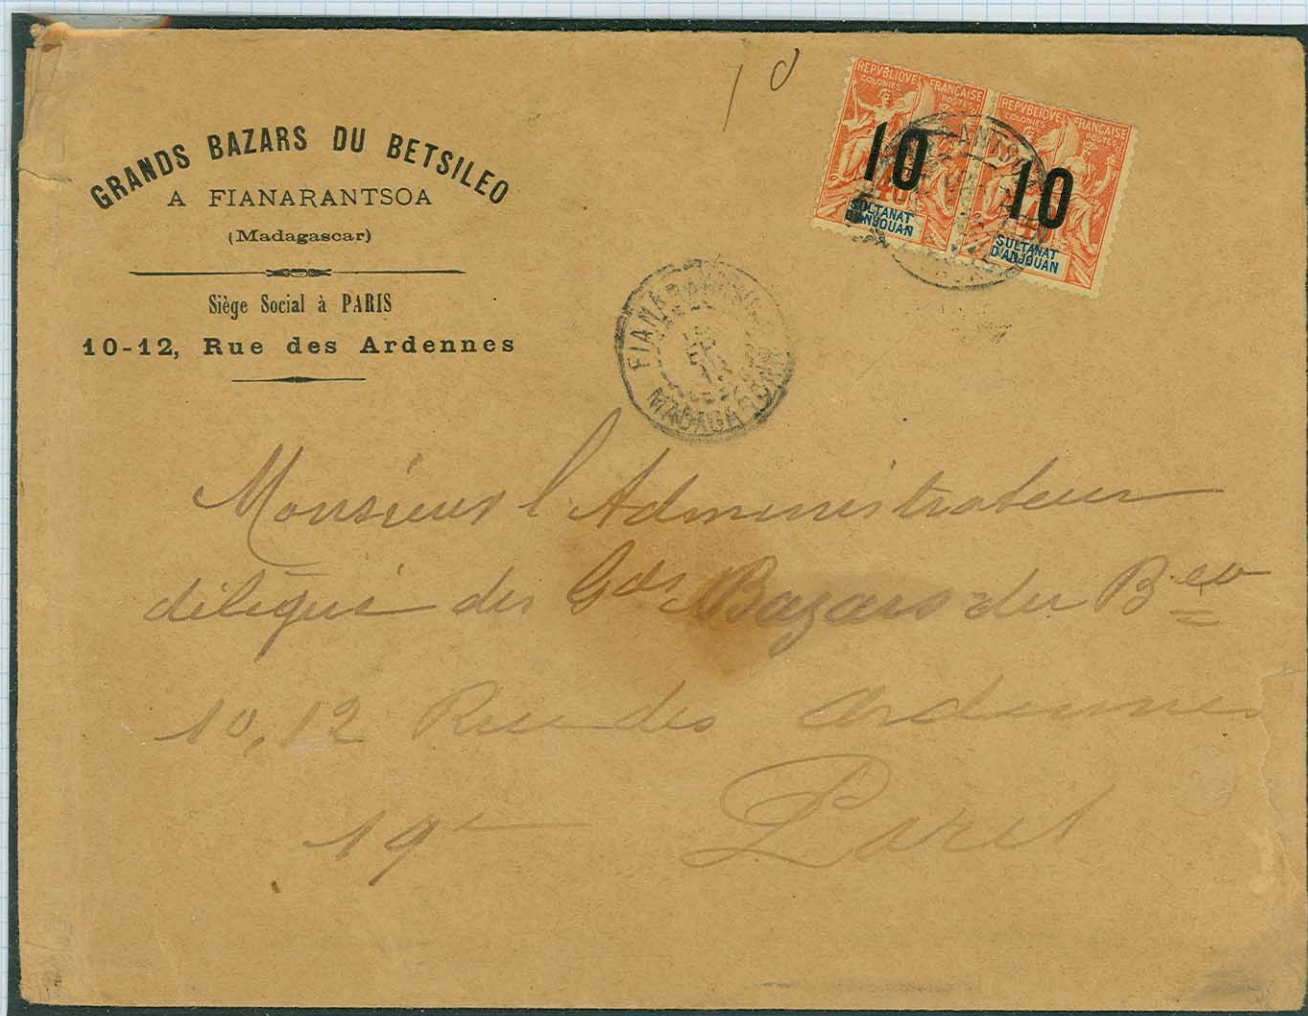 GRANDS BAZARS DU BETSILEO
A FIANARANTSOA
(Madagascar)
Siège Social à PARIS
10-12, Rue des Ardennes
REPVBLIQVE FRANÇAISE
COLONIES POSTES
10
40
SULTANAT
D'ANJOUAN
REPVBLIQVE FRANÇAISE
COLONIES POSTES
10
SULTANAT
D'ANJOUAN
ANTSOA
FIANARANTSOA
MADAGASCAR
Monsieur l'Administrateur
délégué des Gds Bazars du Beo
10,12 Rue des Ardennes
19e Paris